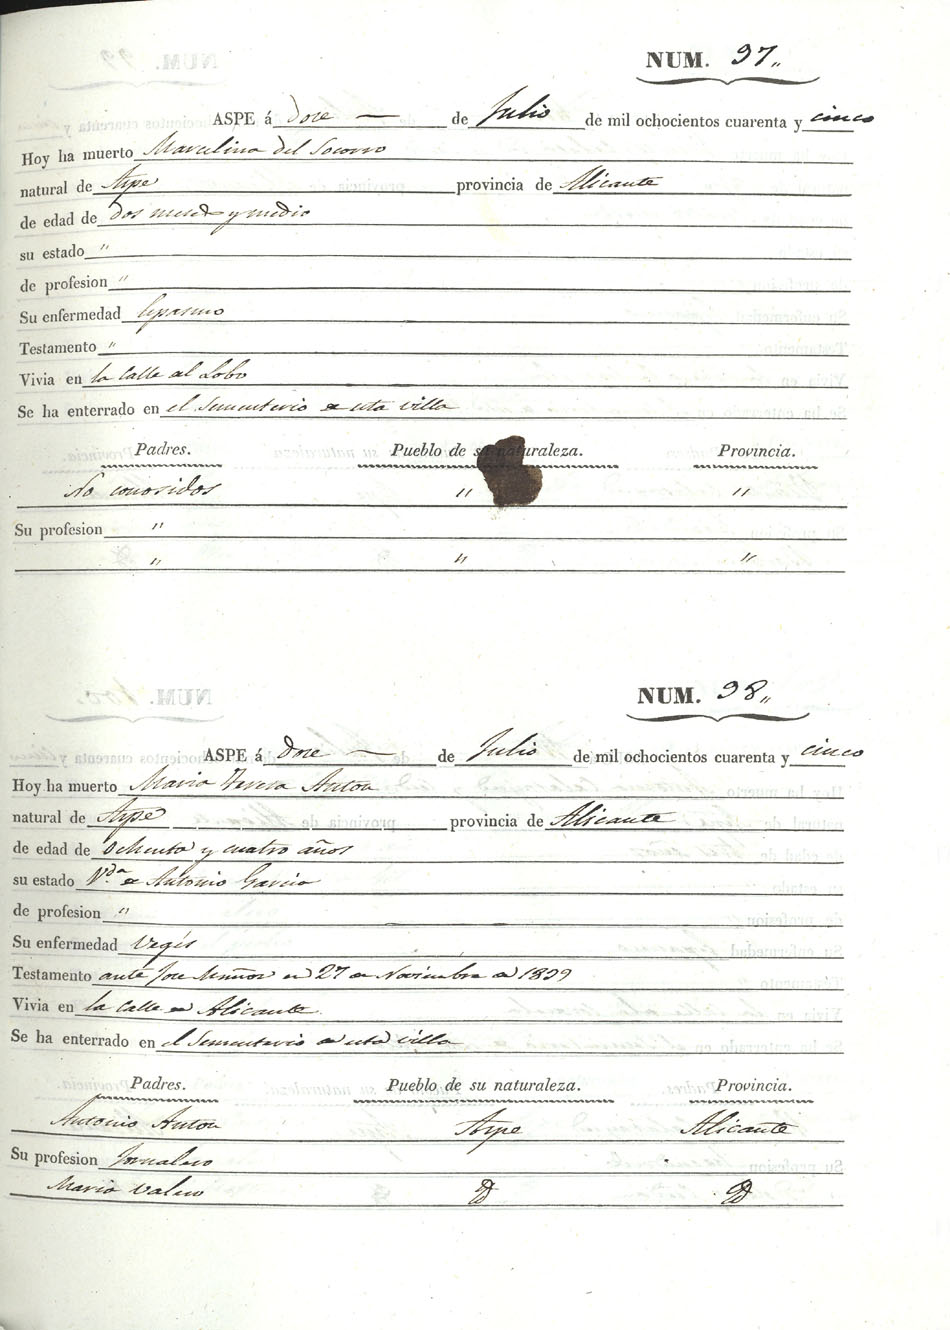 NUM. 97„
ASPE á doce — de Julio de mil ochocientos cuarenta y cinco
Hoy ha muerto Marcelina del Socorro
natural de Aspe provincia de Alicante
de edad de dos meses y medio
su estado "
de profesion "
Su enfermedad Espasmo
Testamento "
Vivia en la Calle del Lobo
Se ha enterrado en el Sementerio de esta villa
Padres. Pueblo de su naturaleza. Provincia.
No conosidos " "
Su profesion "
" " "
NUM. 98„
ASPE á doce — de Julio de mil ochocientos cuarenta y cinco
Hoy ha muerto Maria Teresa Anton
natural de Aspe provincia de Alicante
de edad de Ochenta y cuatro años
su estado V.da de Antonio Garcia
de profesion "
Su enfermedad Vegés
Testamento ante Jose Muñoz en 27 de Noviembre de 1839
Vivia en la Calle de Alicante
Se ha enterrado en el Sementerio de esta villa
Padres. Pueblo de su naturaleza. Provincia.
Antonio Anton Aspe Alicante
Su profesion Jornalero
Maria Valero